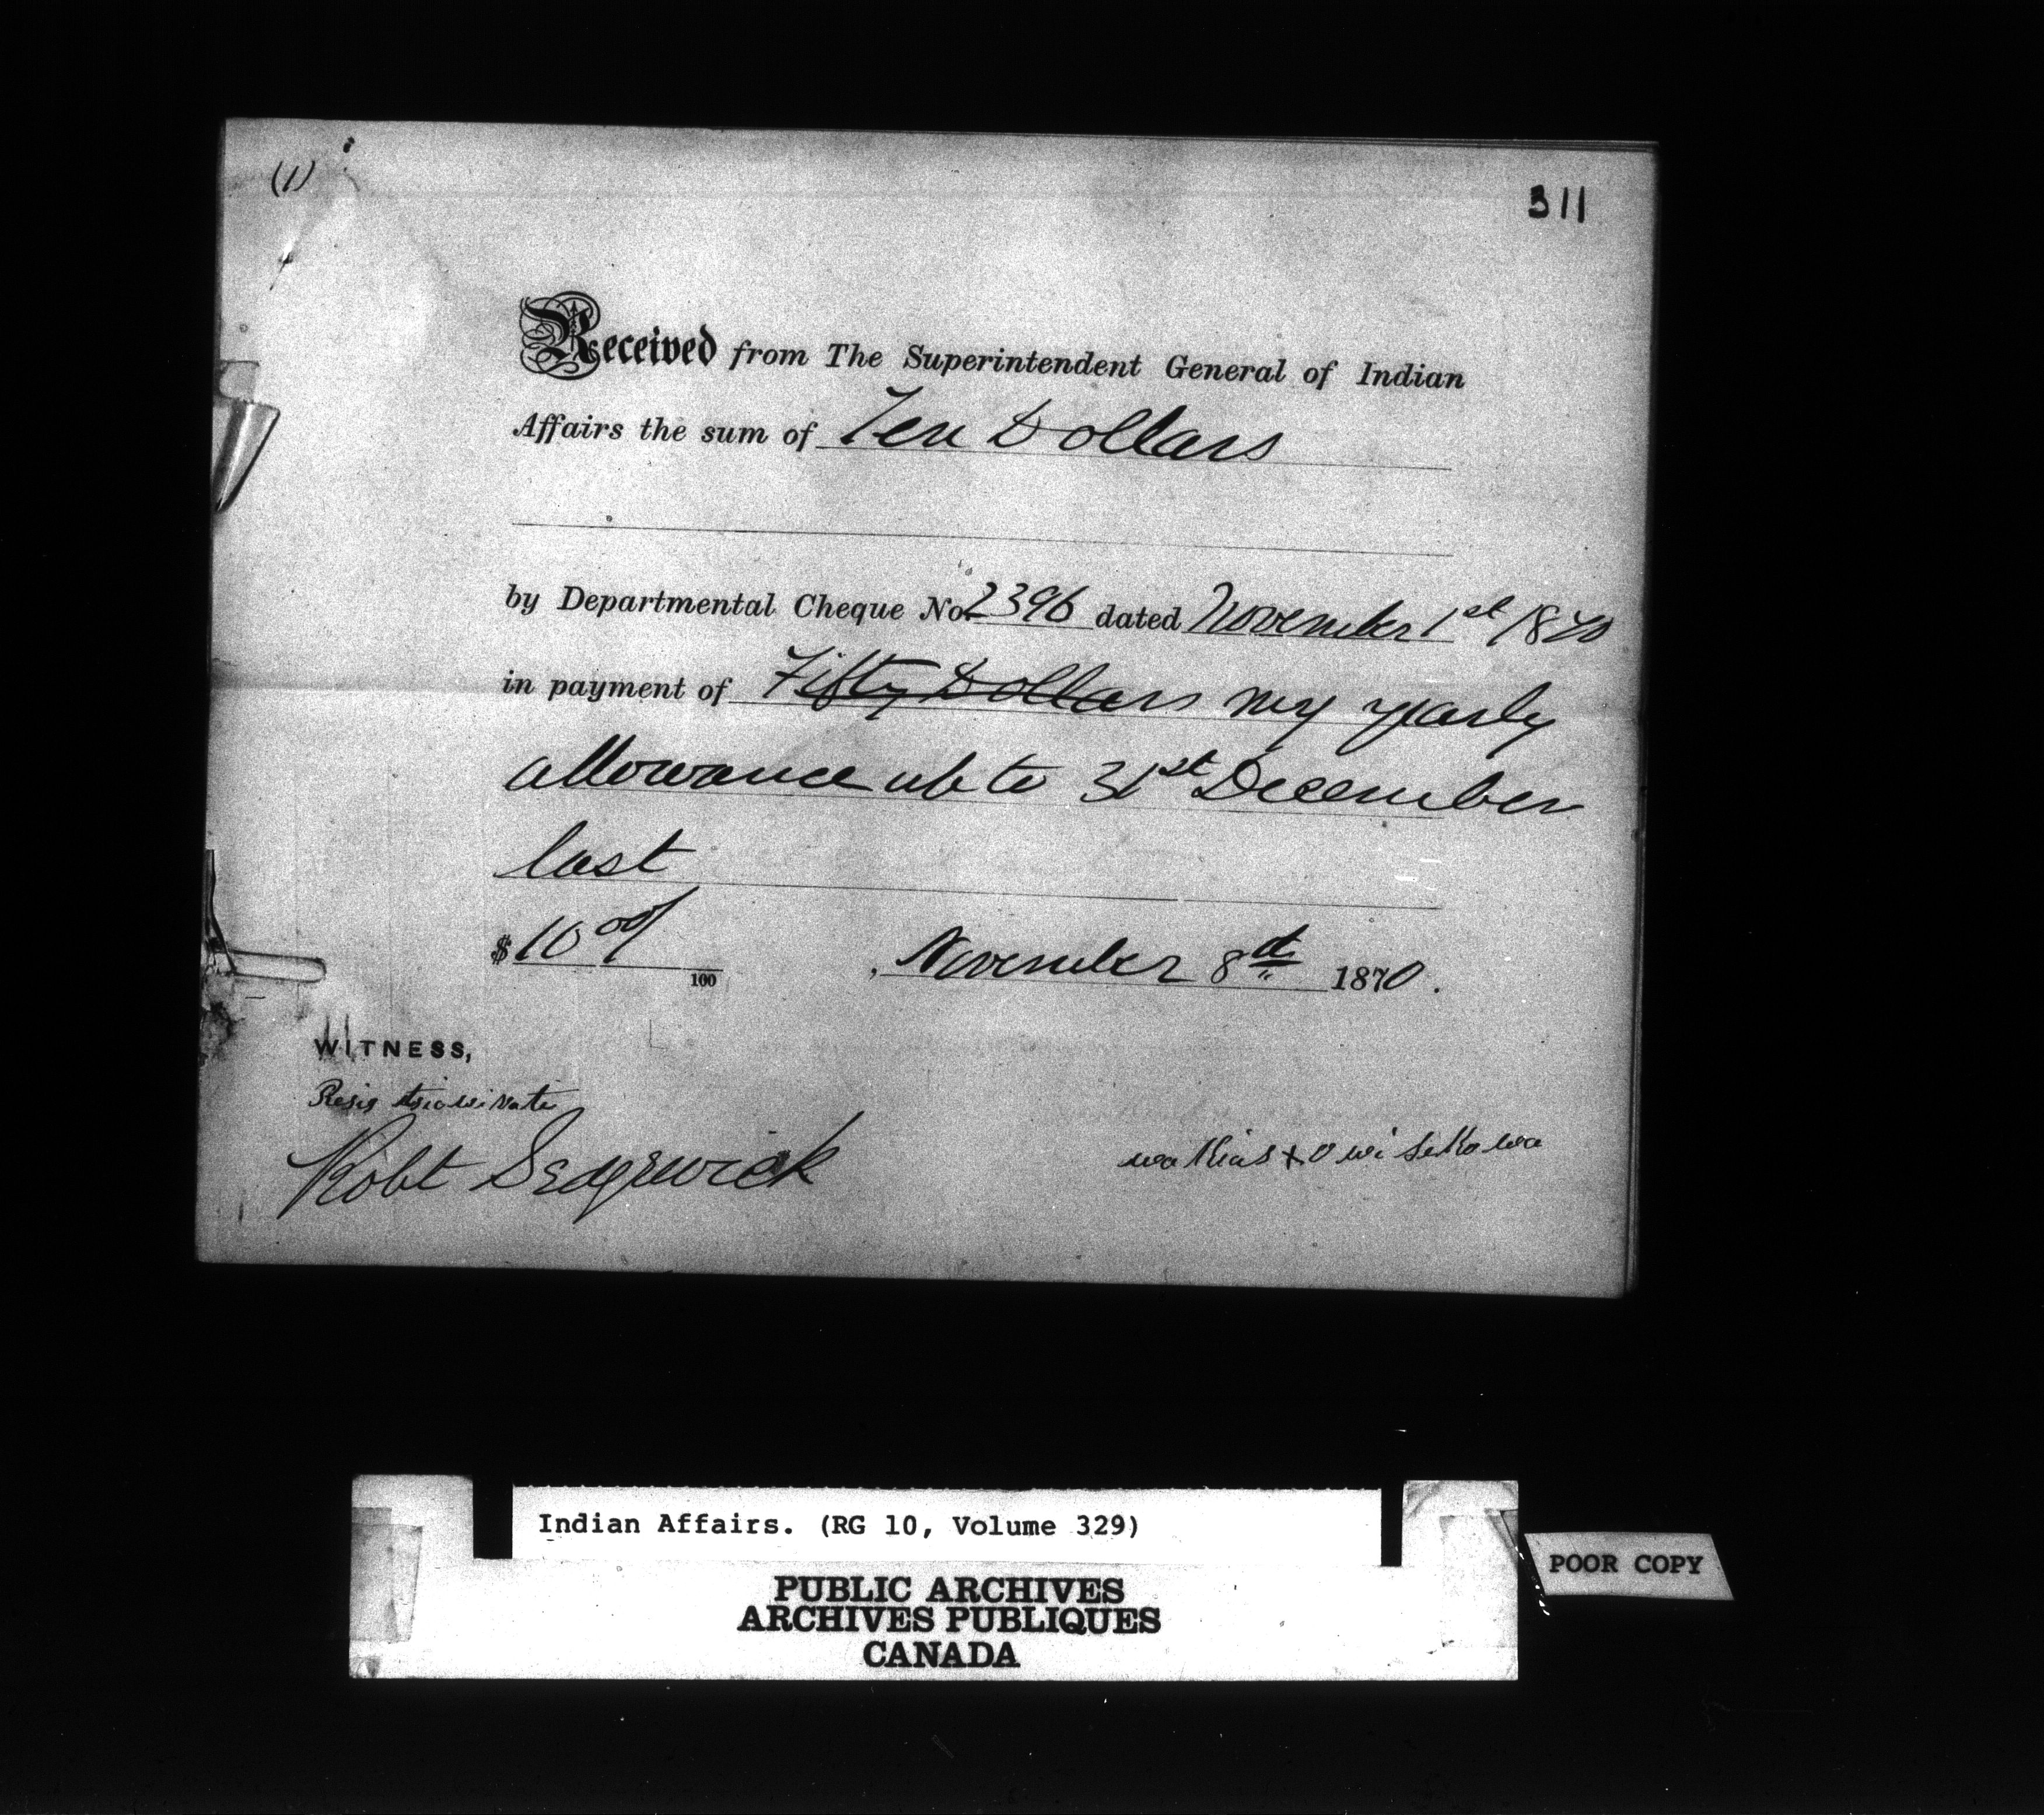 (1)
311
Received from The Superintendent General of Indian
Affairs the sum of Ten Dollars
by Departmental Cheque No. 2396 dated November 1st 1870
in payment of Fifty Dollars my yearly
allowance up to 31st December
last
$ 10 00/100 , November 8th 1870.
WITNESS,
Robt Sedgwick
Indian Affairs. (RG 10, Volume 329)
PUBLIC ARCHIVES
ARCHIVES PUBLIQUES
CANADA
POOR COPY